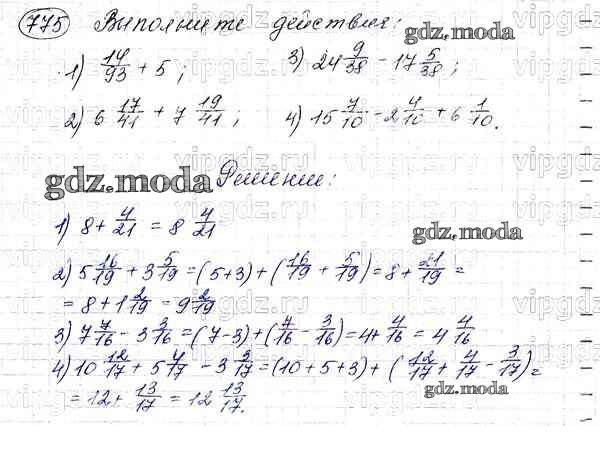 775 Выполните действия:
gdz.moda
1) 14/93 + 5; 3) 24 9/38 - 17 5/38;
2) 6 17/41 + 7 19/41; 4) 15 7/10 - 2 4/10 + 6 1/10.
gdz.moda Решение:
1) 8 + 4/21 = 8 4/21
gdz.moda
2) 5 16/19 + 3 5/19 = (5+3) + (16/19 + 5/19) = 8 + 21/19 =
= 8 + 1 2/19 = 9 2/19
3) 7 7/16 - 3 3/16 = (7-3) + (7/16 - 3/16) = 4 + 4/16 = 4 4/16
4) 10 12/17 + 5 4/17 - 3 3/17 = (10+5+3) + (12/17 + 4/17 - 3/17) =
gdz.moda
= 12 + 13/17 = 12 13/17.
vipgdz.ru